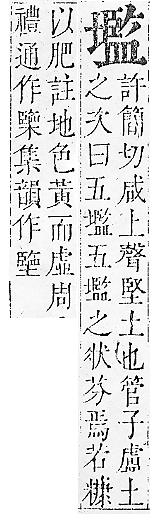 壏
許簡切咸上聲堅土也管子盧土
之次曰五壏五壏之狀芬焉若糠
以肥註地色黃而虛周
禮通作㯺集韻作